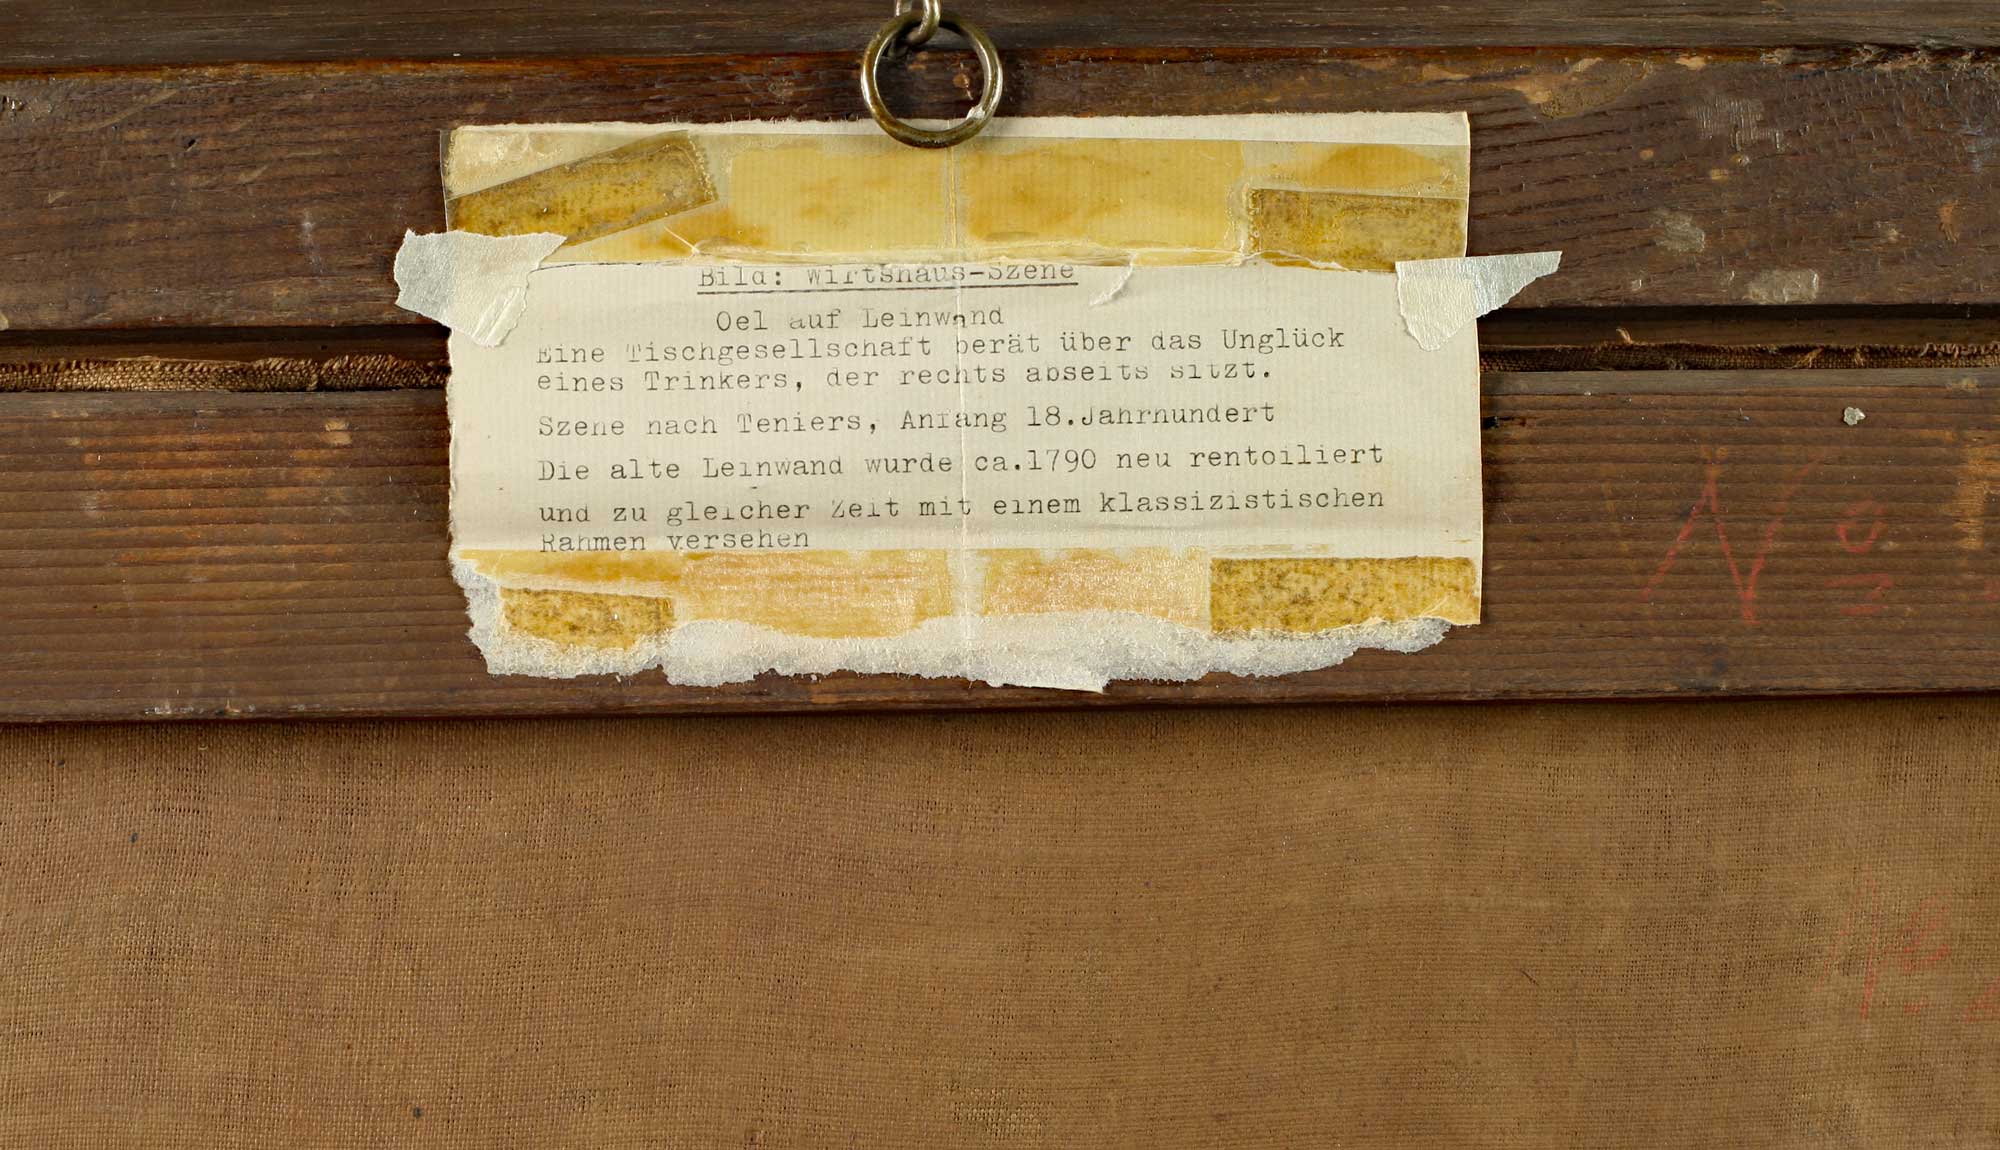 Bild: Wirtshaus-Szene
Oel auf Leinwand
Eine Tischgesellschaft berät über das Unglück
eines Trinkers, der rechts abseits sitzt.
Szene nach Teniers, Anfang 18.Jahrhundert
Die alte Leinwand wurde ca.1790 neu rentoiliert
und zu gleicher Zeit mit einem klassizistischen
Rahmen versehen
No